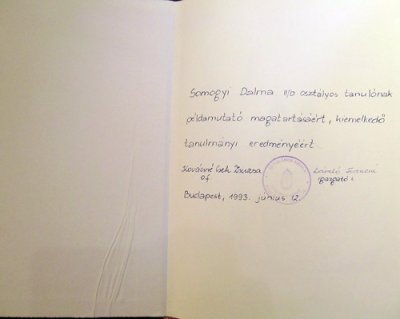 Somogyi Dalma II/D osztályos tanulónak
példamutató magatartásáért, kiemelkedő
tanulmányi eredményéért
Kovácsné Cseh Zsuzsa
of.
László
igazgató
Budapest, 1993. június 12.